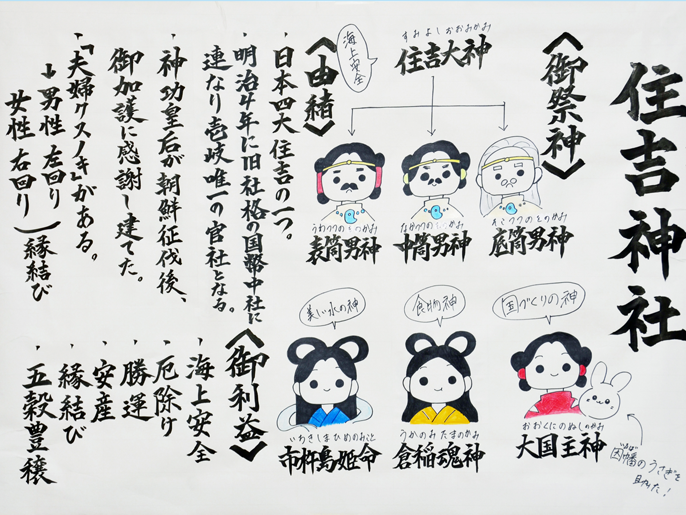 住吉神社
〈御祭神〉
すみよしおおみかみ
住吉大神
海上安全
そこつつのおのかみ
底筒男神
なかつつのおのかみ
中筒男神
うわつつのおのかみ
表筒男神
国づくりの神
おおくにのぬしのかみ
大国主神
因幡のうさぎを
いなば
助けた!
食物神
うかのみたまのかみ
倉稲魂神
美しい水の神
いちきしまひめのみこと
市杵島姫命
〈由緒〉
・日本四大住吉の一つ。
・明治4年に旧社格の国幣中社に
連なり壱岐唯一の官社となる。
・神功皇后が朝鮮征伐後、
御加護に感謝し建てた。
・「夫婦クスノキ」がある。
↓男性 左回り
女性 右回り
縁結び
〈御利益〉
・海上安全
・厄除け
・勝運
・安産
・縁結び
・五穀豊穣